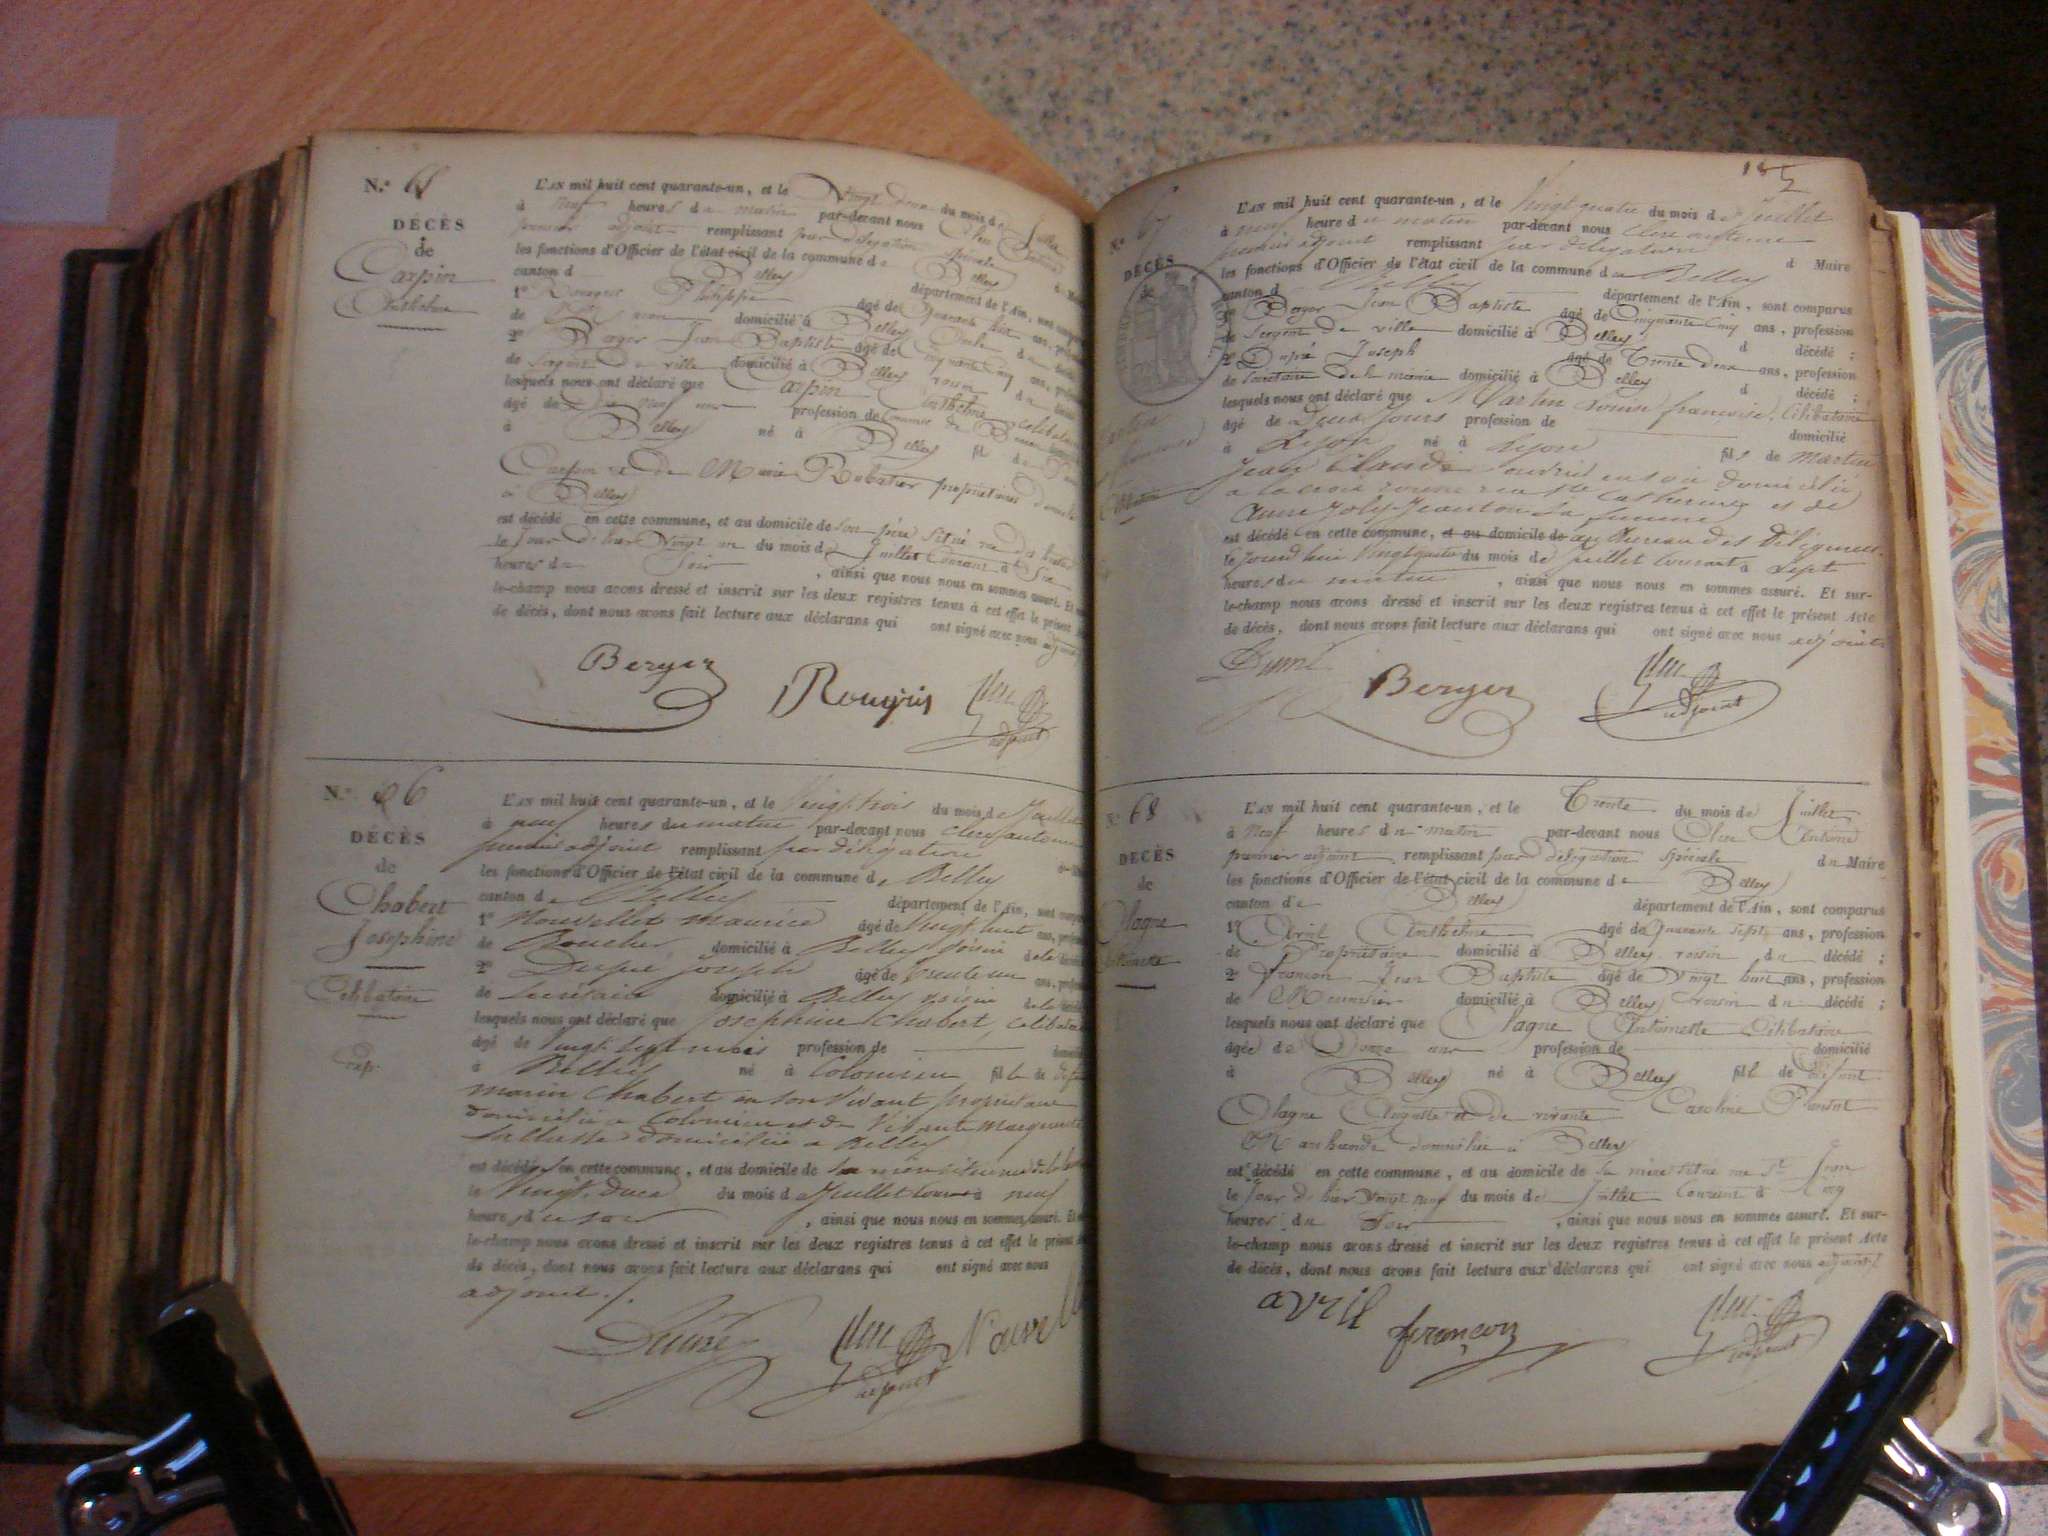 N.º 65
DÉCÈS
de
Carpin
Anthelme
L'AN mil huit cent quarante-un, et le Vingt deux du mois de Juillet
à neuf heures du matin par-devant nous
premier adjoint remplissant par délégation spéciale
les fonctions d'Officier de l'état civil de la commune de Belley
canton de Belley département de l'Ain, sont
1º Philippe âgé de quarante huit ans,
de domicilié à Belley
2º Berger Jean Baptiste âgé de Cinquante Cinq ans,
de Sergent de ville domicilié à Belley voisin
lesquels nous ont déclaré que Carpin Anthelme célibataire
âgé de dix neuf ans profession de Commis de
à Belley né à Belley fil de
Carpin et de Marie Rubatier propriétaires
à Belley
est décédé en cette commune, et au domicile de son père situé rue des
le Jour d'hier Vingt un du mois de Juillet Courant à Six
heures du Soir , ainsi que nous nous en sommes assuré. Et
le-champ nous avons dressé et inscrit sur les deux registres tenus à cet effet le présent
de décès, dont nous avons fait lecture aux déclarans qui ont signé avec nous adjoint
Berger
adjoint
N.º 66
DÉCÈS
de
Chabert
Joséphine
Célibataire
L'AN mil huit cent quarante-un, et le Vingt trois du mois de Juillet
à neuf heures du matin par-devant nous Clerc antoine
premier adjoint remplissant par délégation
les fonctions d'Officier de l'état civil de la commune de Belley
canton de Belley département de l'Ain, sont
1º Nouvellet maurice âgé de Vingt huit ans,
de Boucher domicilié à Belley voisin de la
2º Dupré joseph âgé de trente un ans,
de Secrétaire domicilié à Belley voisin de la
lesquels nous ont déclaré que Joséphine Chabert, Célibataire
âgé de Vingt sept mois profession de
à Belley né à Colomieu fille de défunt
marin Chabert en son Vivant propriétaire
domicilié à Colomieu et de Vivante Marguerite
domiciliée à Belley
est décédé en cette commune, et au domicile de sa mère
le Vingt deux du mois de Juillet courant à neuf
heures du soir , ainsi que nous nous en sommes assuré. Et
le-champ nous avons dressé et inscrit sur les deux registres tenus à cet effet le présent
de décès, dont nous avons fait lecture aux déclarans qui ont signé avec nous
adjoint ./.
Dupré
adjoint
185
N.º 67
DÉCÈS
de
L'AN mil huit cent quarante-un, et le Vingt quatre du mois de Juillet
à neuf heure du matin par-devant nous Clerc antoine
premier adjoint remplissant par délégation d Maire
les fonctions d'Officier de l'état civil de la commune de Belley
canton d Belley département de l'Ain, sont comparus
1º Berger Jean Baptiste âgé de Cinquante Cinq ans, profession
de Sergent de ville domicilié à Belley d décédé ;
2º Dupré Joseph âgé de Trente deux ans, profession
de Secrétaire de la mairie domicilié à Belley d décédé ;
lesquels nous ont déclaré que Martin Louise françoise, Célibataire
âgé de deux jours profession de domicilié
à Lyon né à Lyon fils de Martin
Jean Claude ouvrier en soie domicilié
à la croix rousse rue Ste Catherine et de
Anne Joly Jeanton Sa femme
est décédé en cette commune, et au domicile de au Bureau des Diligences
le jourd'hui Vingt quatre du mois de Juillet courant à Sept
heures du matin , ainsi que nous nous en sommes assuré. Et sur-
le-champ nous avons dressé et inscrit sur les deux registres tenus à cet effet le présent Acte
de décès, dont nous avons fait lecture aux déclarans qui ont signé avec nous adjoint
Dupré
Berger
adjoint
N.º 68
DÉCÈS
de
L'AN mil huit cent quarante-un, et le Trente du mois de Juillet
à neuf heures du matin par-devant nous Clerc Antoine
premier adjoint remplissant par délégation spéciale du Maire
les fonctions d'Officier de l'état civil de la commune de Belley
canton de Belley département de l'Ain, sont comparus
1º Avril Anthelme âgé de Quarante sept ans, profession
de Propriétaire domicilié à Belley voisin du décédé ;
2º françon Jean Baptiste âgé de Vingt huit ans, profession
de Menuisier domicilié à Belley voisin du décédé ;
lesquels nous ont déclaré que Olagne Antoinette Célibataire
âgée de Douze ans profession de domicilié
à Belley né à Belley fille de défunt
Olagne Auguste et de vivante Caroline
Marchande domiciliée à Belley
est décédé en cette commune, et au domicile de sa mère situé rue St. Jean
le Jour d'hier Vingt neuf du mois de Juillet Courant à Cinq
heures du Soir , ainsi que nous nous en sommes assuré. Et sur-
le-champ nous avons dressé et inscrit sur les deux registres tenus à cet effet le présent Acte
de décès, dont nous avons fait lecture aux déclarans qui ont signé avec nous adjoint
avril
françon
adjoint